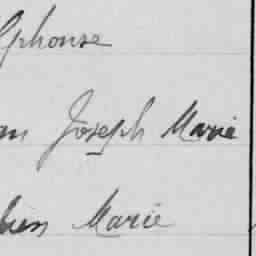 lphonse
an Joseph Marie
bien Marie